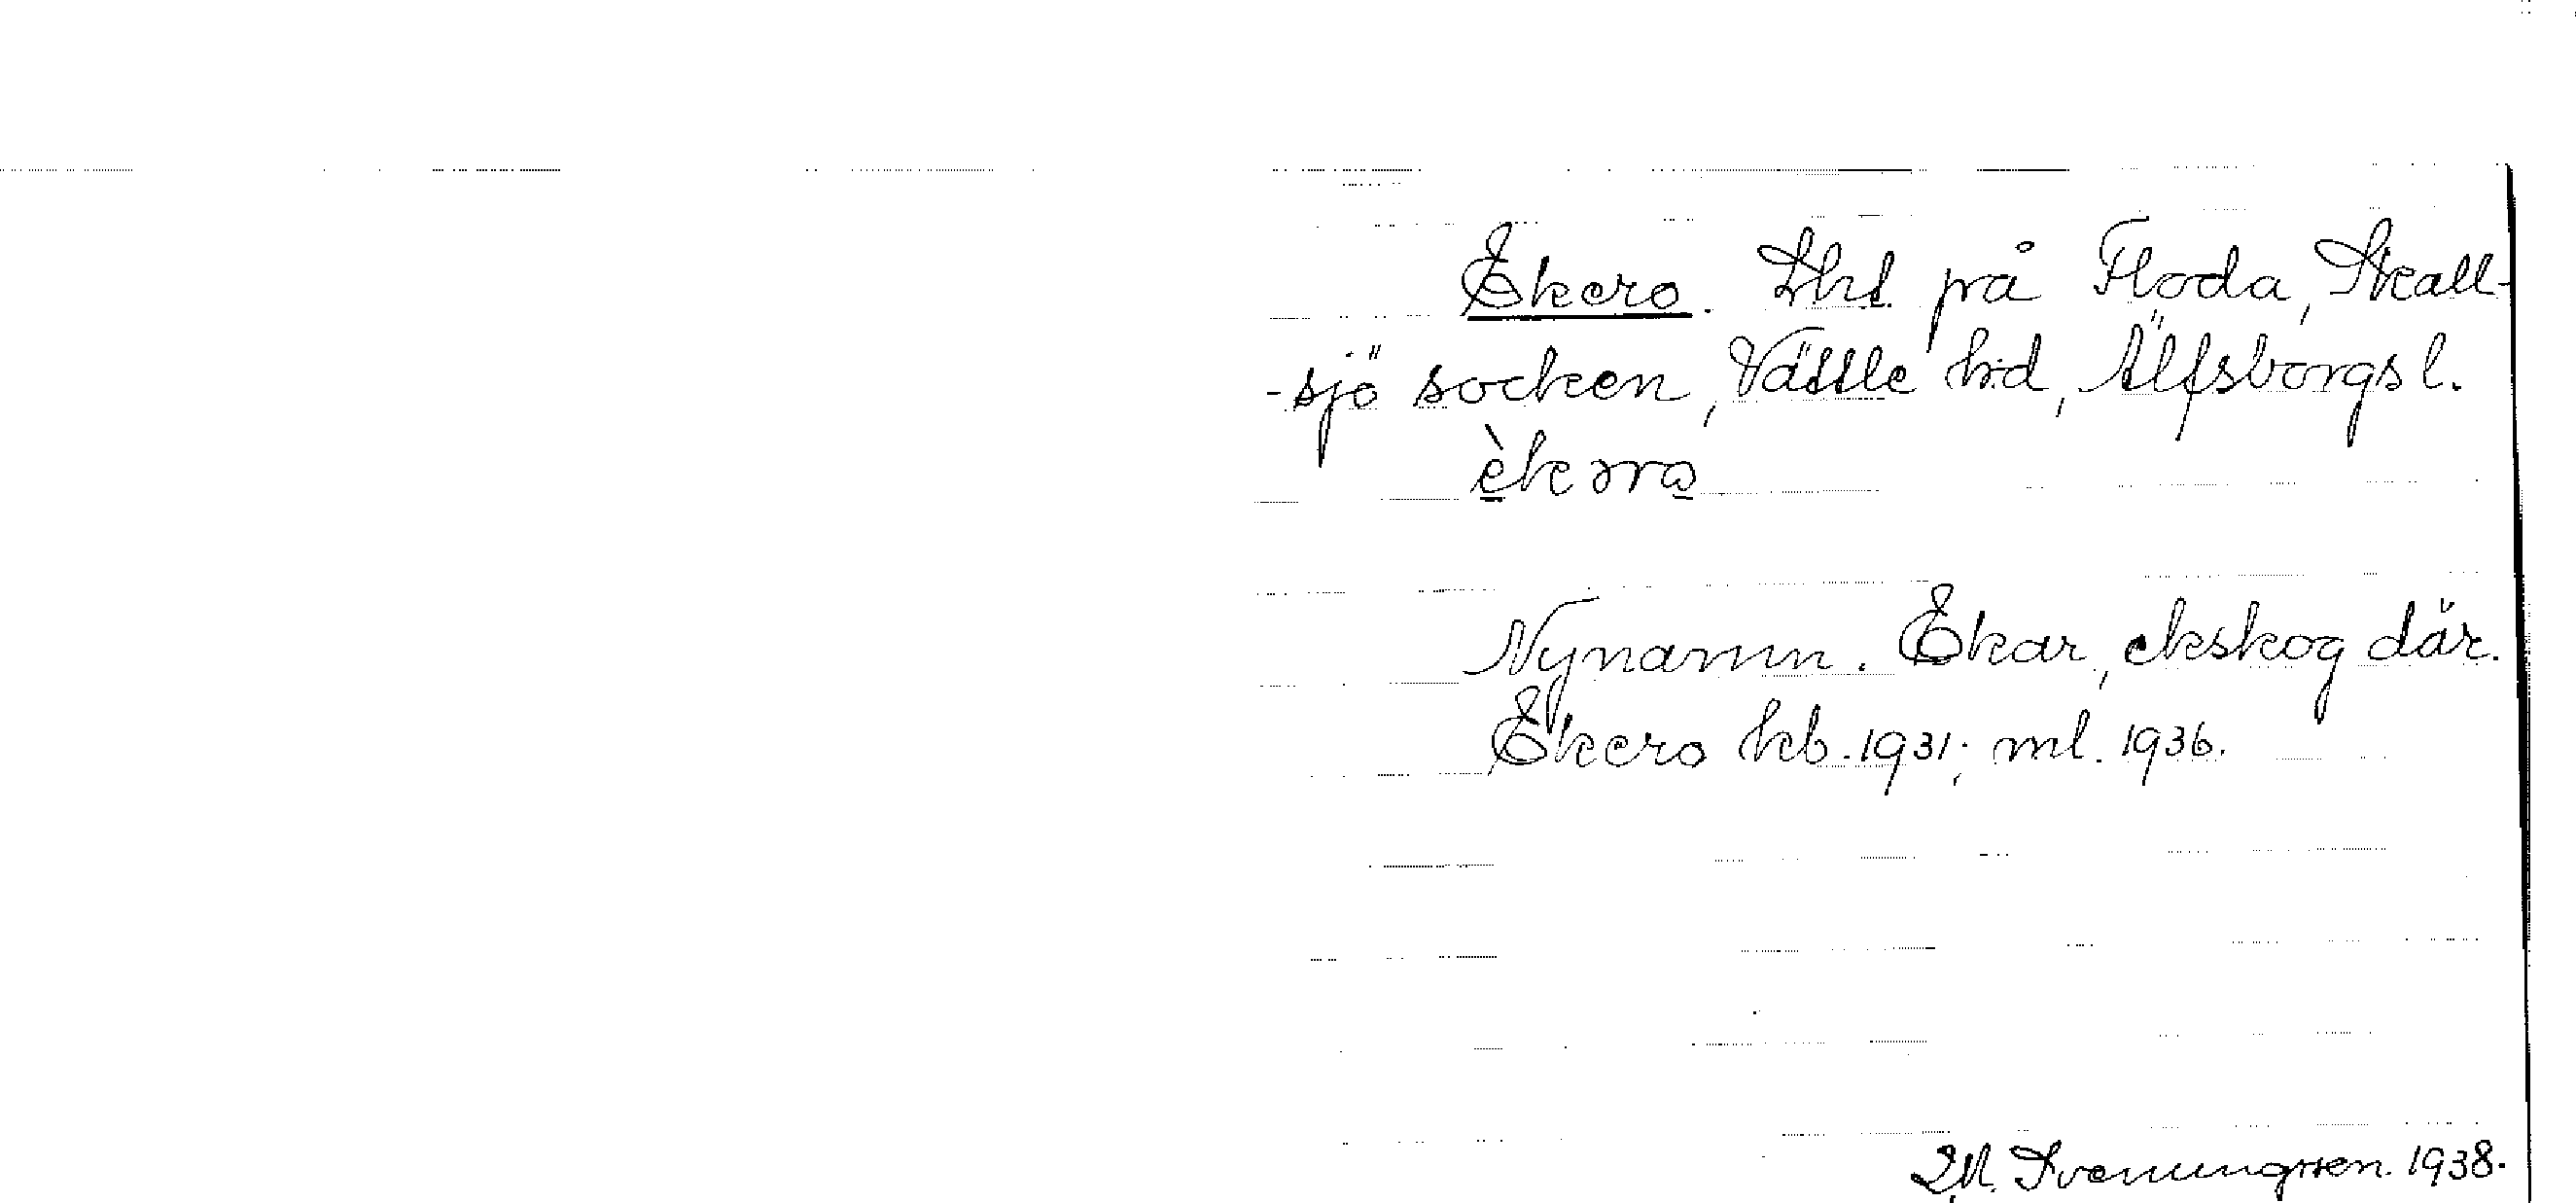 Ekero. Lht på Floda, Skall-
-sjö socken, Vättle hd, Älfsborgs l.
èkərω
Nynamn. Ekar, ekskog där.
Ekero kb. 1931; ml. 1936.
Svenungsson. 1938.